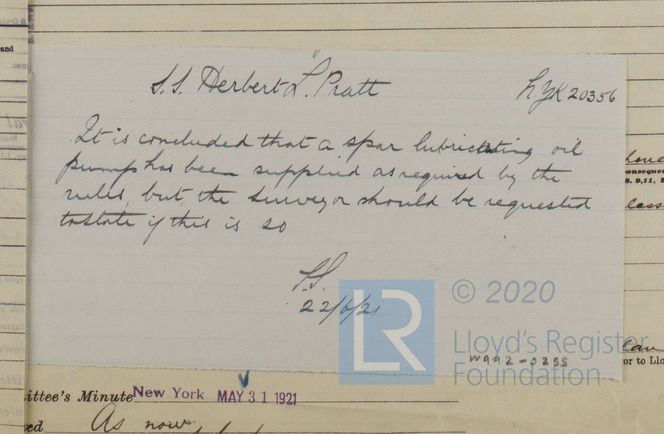 S.S. Herbert L. Pratt
NYK 20356
It is concluded that a spar lubricating oil
pump has been supplied as required by the
rules, but the surveyor should be requested
to state if this is so
22/6/21
LR
© 2020
Lloyd's Register
Foundation
W992-0255
ittee's Minute New York MAY 31 1921
As now
and
or to Llo